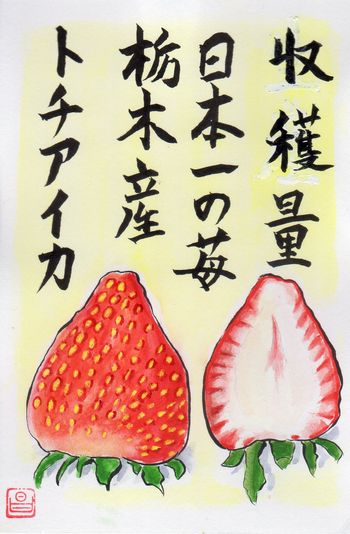 収穫量
日本一の苺
栃木産
トチアイカ